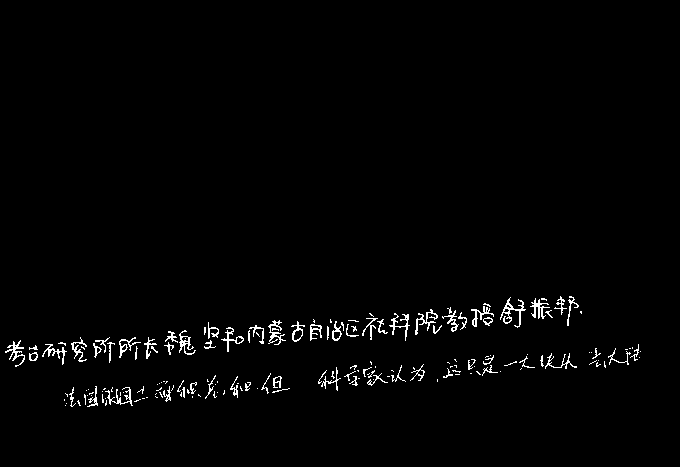 考古研究所所长魏坚和内蒙古自治区社科院教授舒振邦.
法国国土面积总和.但 科学家认为,这只是一大块从 去大陆